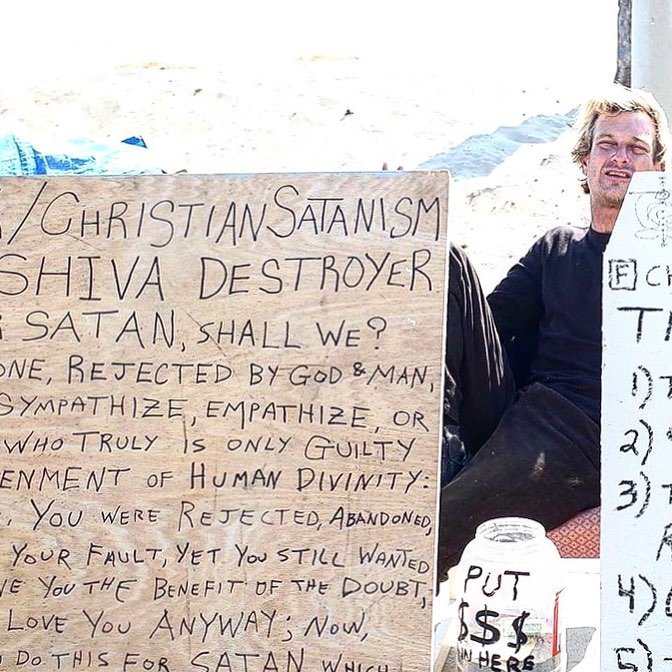 /CHRISTIAN SATANISM
SHIVA DESTROYER
SATAN, SHALL WE?
ONE, REJECTED BY GOD & MAN,
SYMPATHIZE, EMPATHIZE, OR
WHO TRULY IS ONLY GUILTY
ENMENT OF HUMAN DIVINITY:
YOU WERE REJECTED, ABANDONED,
YOUR FAULT, YET YOU STILL WANTED
VE YOU THE BENEFIT OF THE DOUBT,
LOVE YOU ANYWAY; NOW,
DO THIS FOR SATAN WHICH
PUT
$$$
IN HERE
F
1)
2)
3)
4)
5)